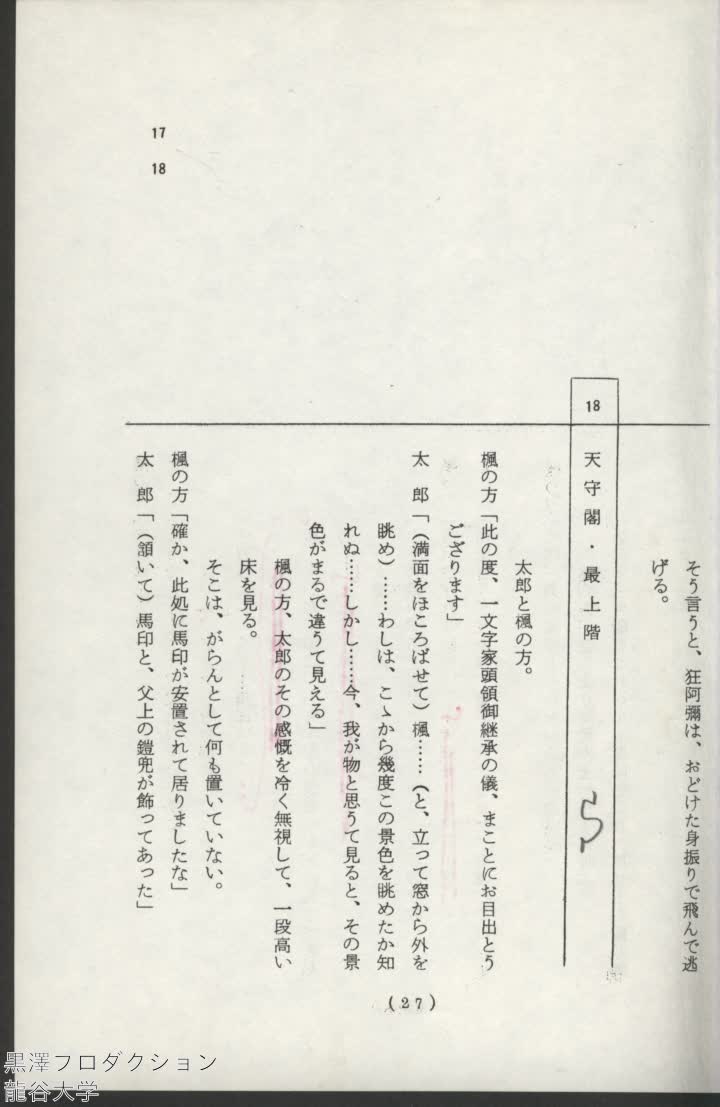 そう言うと、狂阿彌は、おどけた身振りで飛んで逃
げる。
18 天守閣・最上階
5
太郎と楓の方。
楓の方「此の度、一文字家頭領御継承の儀、まことにお目出とう
ござります」
太　郎「(満面をほころばせて)楓……(と、立って窓から外を
眺め)……わしは、こゝから幾度この景色を眺めたか知
れぬ……しかし……今、我が物と思うて見ると、その景
色がまるで違うて見える」
楓の方、太郎のその感慨を冷く無視して、一段高い
床を見る。
そこは、がらんとして何も置いていない。
楓の方「確か、此処に馬印が安置されて居りましたな」
太　郎「(頷いて)馬印と、父上の鎧兜が飾ってあった」
17
18
(27)
黒澤フロダクション
龍谷大学